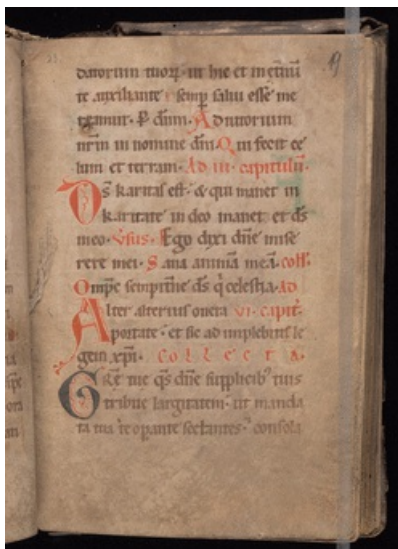 19
datorum tuoꝝ · ut hic et in et̄nū
te auxiliante semp̄ salui esse me
reamur · P̄ dn̄m · Adiutorium
nr̄m in nomine dn̄i · Qui fecit ce
lum et terram · Ad iii · capitulū ·
Ds̄ karitas est · & qui manet in
karitate in deo manet et ds̄
in eo · v̄sus · Ego dixi dn̄e mise
rere mei · Sana animā meā · coll̄ ·
Omp̄s sempit̄ne ds̄ q̄ celestia · ad
Alter alterius onera vi · capit̄ ·
portate · et sic adimplebitis le
gem xp̄i · Collecta ·
tribue largitatem · ut manda
ta tua te opante sectantes · consola